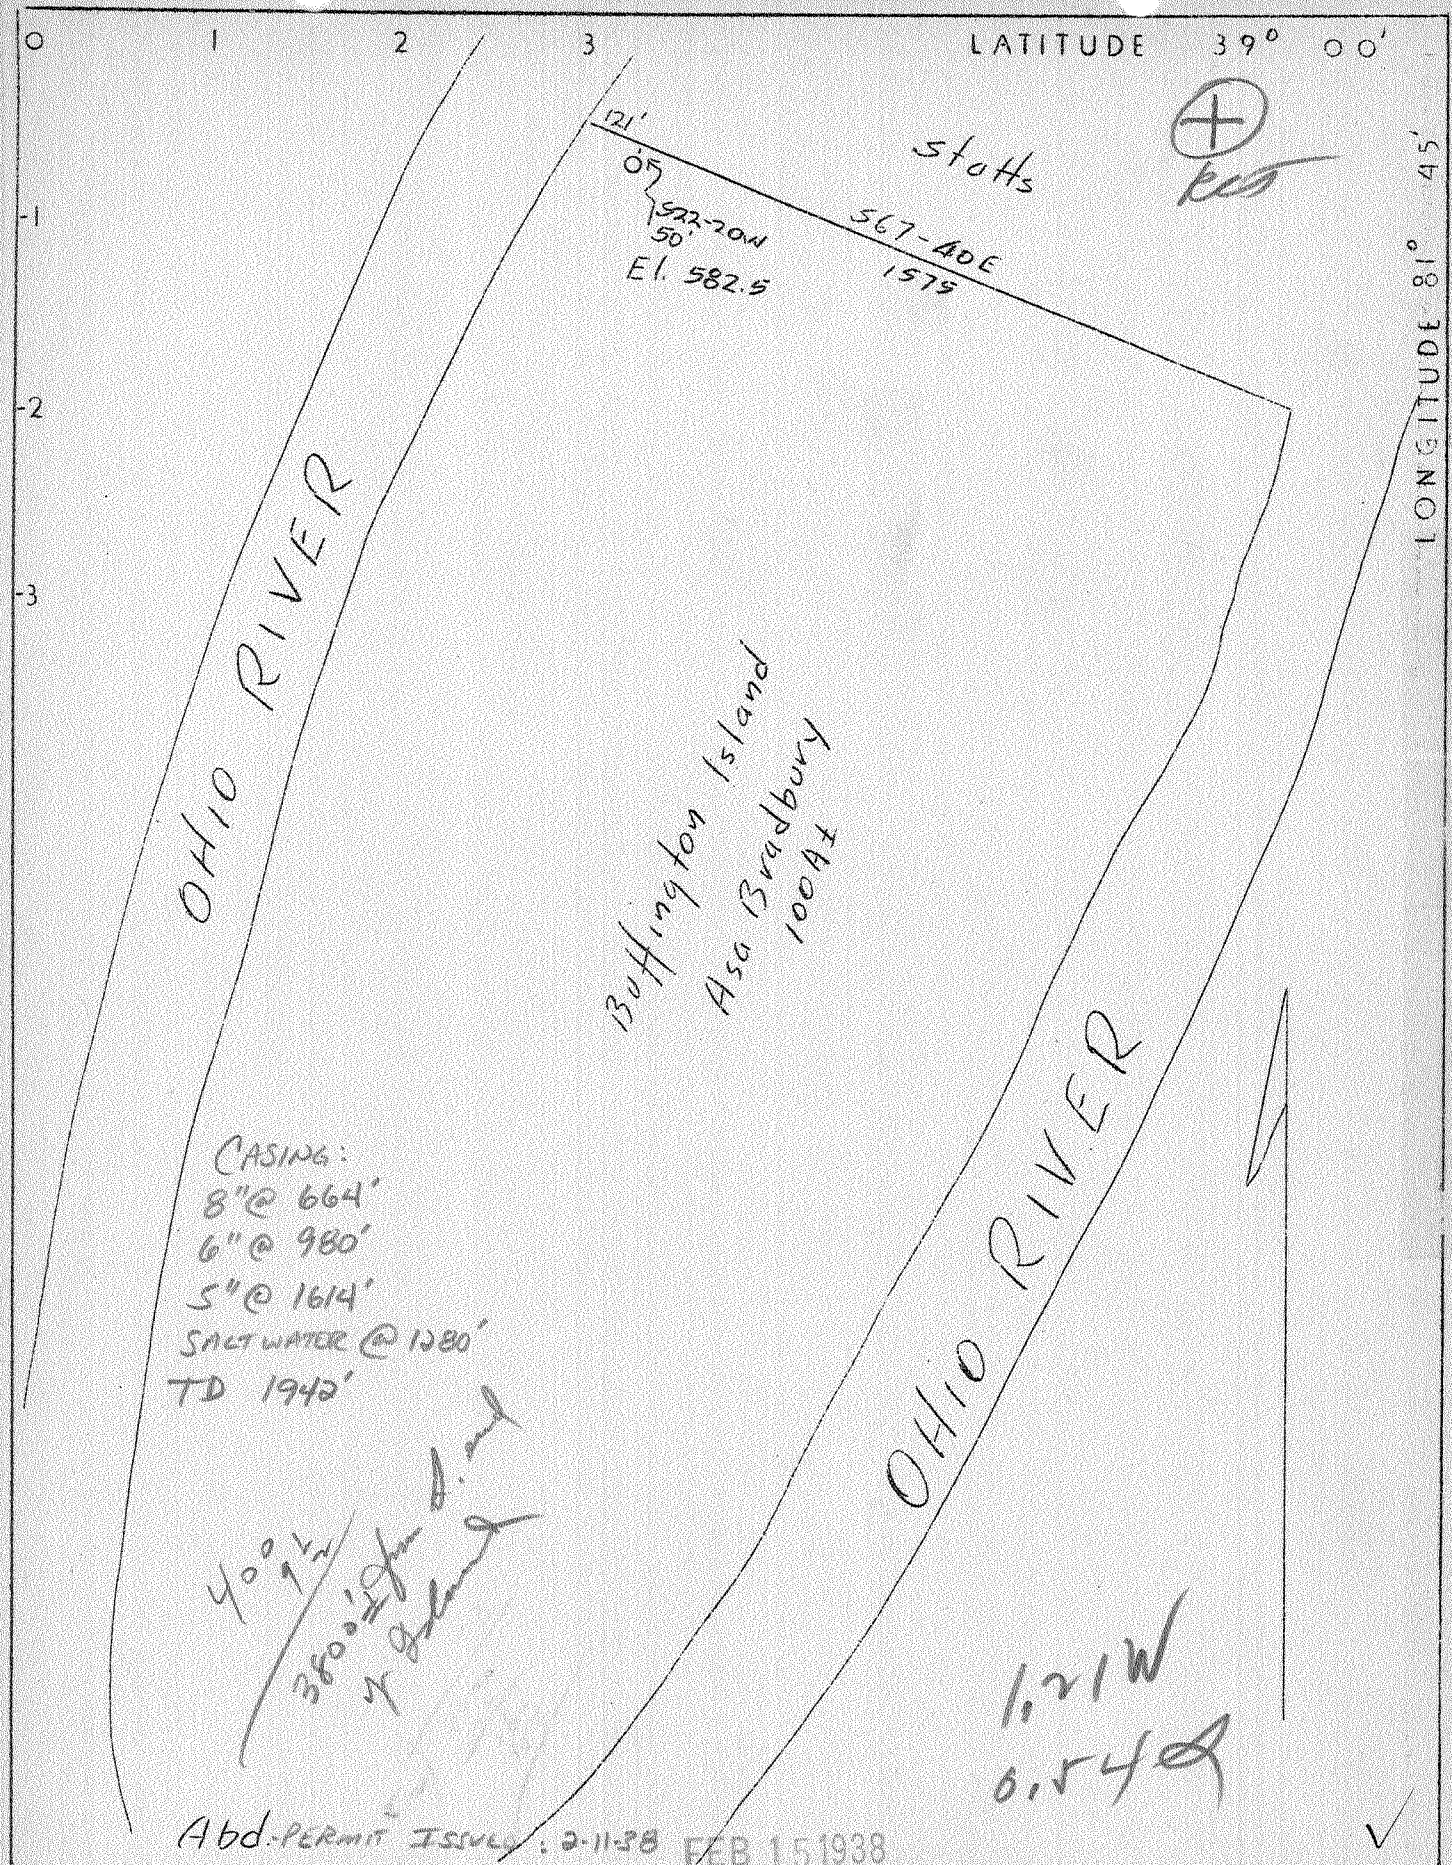 0 1 2 3 LATITUDE 39° 00'
LONGITUDE 81° 45'
-1
-2
-3
121'
Statts
S22-20W
50'
El. 582.5
S67-40E
1575
OHIO RIVER
Buffington Island
Asa Bradbury
100A±
OHIO RIVER
CASING:
8"@ 664'
6"@ 980'
5"@ 1614'
SALT WATER @ 1280'
TD 1942'
3800'± from S. end
Island
1.21W
0.54
Abd. PERMIT ISSUED: 2-11-38 FEB 15 1938